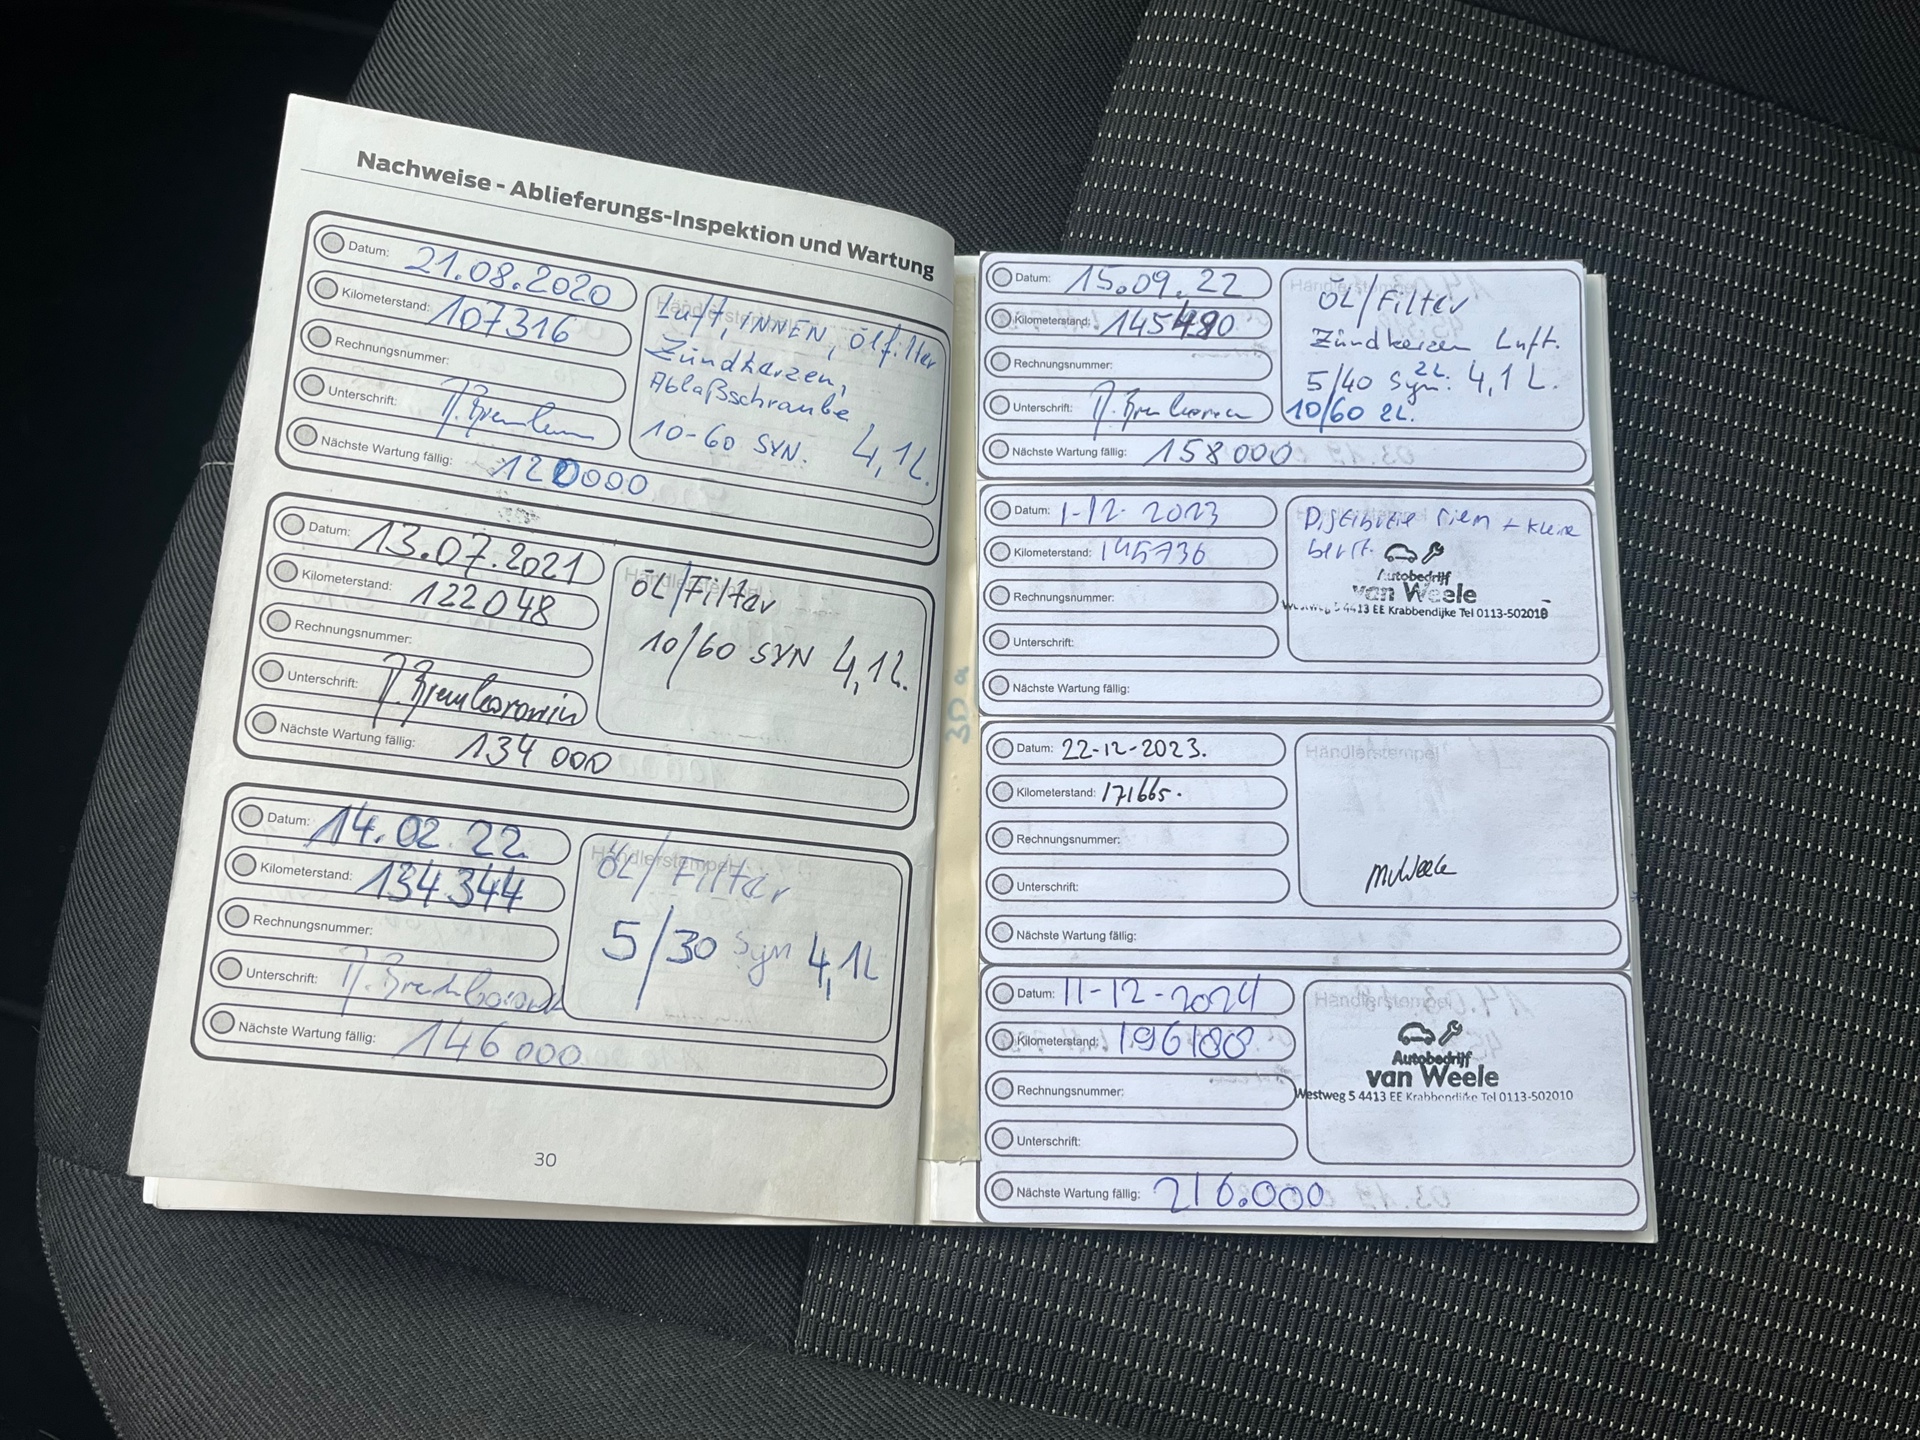 Nachweise - Ablieferungs-Inspektion und Wartung
Datum: 21.08.2020
Kilometerstand: 107316
Rechnungsnummer:
Unterschrift:
Nächste Wartung fällig: 120000
Händlerstempel
Luft, INNEN, Ölfilter
Zündkerzen,
Ablaßschraube
10-60 SYN. 4,1L.
Datum: 13.07.2021
Kilometerstand: 122048
Rechnungsnummer:
Unterschrift:
Nächste Wartung fällig: 134 000
Händlerstempel
ÖL/Filter
10/60 SYN 4,1L.
Datum: 14.02.22.
Kilometerstand: 134344
Rechnungsnummer:
Unterschrift:
Nächste Wartung fällig: 146000
Händlerstempel
ÖL/Filter
5/30 Syn 4,1L
30
Datum: 15.09.22
Kilometerstand: 145490
Rechnungsnummer:
Unterschrift:
Nächste Wartung fällig: 158000
Händlerstempel
ÖL/Filter
Zündkerzen Luft.
2L.
5/40 Syn. 4,1L.
10/60 2L.
Datum: 1-12-2023
Kilometerstand:
Rechnungsnummer:
Unterschrift:
Nächste Wartung fällig:
Distributie riem + kleine
beurt.
Autobedrijf
van Weele
Westweg 5 4413 EE Krabbendijke Tel 0113-502010
Datum: 22-12-2023.
Kilometerstand: 171665.
Rechnungsnummer:
Unterschrift:
Nächste Wartung fällig:
Händlerstempel
MvWeele
Datum: 11-12-2024
Kilometerstand: 196188
Rechnungsnummer:
Unterschrift:
Nächste Wartung fällig: 216.000
Händlerstempel
Autobedrijf
van Weele
Westweg 5 4413 EE Krabbendijke Tel 0113-502010